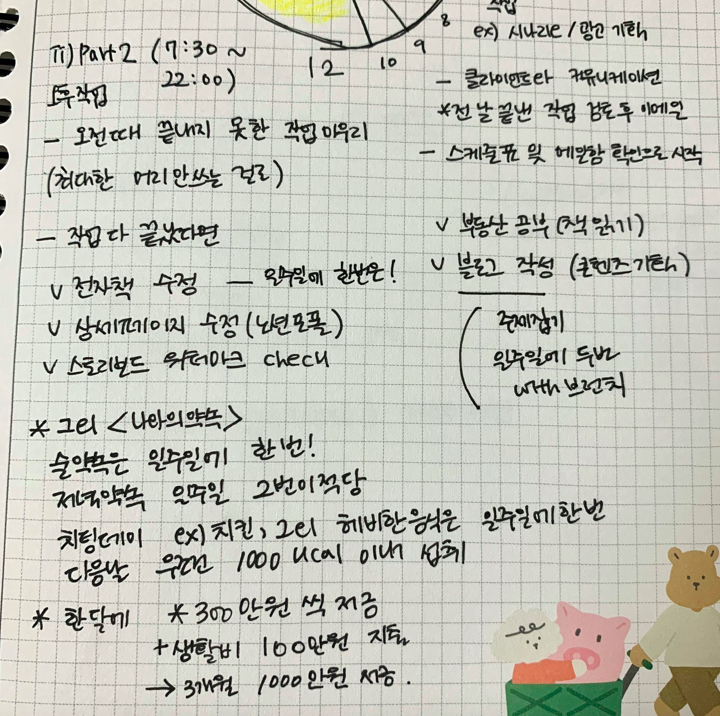 작업
ex) 시나리오 / 광고 기획
- 클라이언트와 커뮤니케이션
*전 날 끝낸 작업 검토 후 이메일
- 스케줄표 및 메일함 확인으로 시작
8
9
10
12
π) Part 2 (7:30 ~
22:00)
- 오전때 끝내지 못한 작업 마무리
(최대한 머리 안쓰는 걸로)
- 작업 다 끝났다면
v 전자책 수정 — 일주일에 한번은!
v 상세페이지 수정 (
v 스토리보드 워터마크 check
v 부동산 공부 (책 읽기)
v 블로그 작성 (콘텐츠 기획)
주제잡기
일주일에 두번
with 브런치
* 그리 <나와의 약속>
술약속은 일주일에 한 번!
저녁약속 일주일 2번이 적당
치팅데이 ex) 치킨, 그리 헤비한 음식은 일주일에 한번
다음날 무조건 1000 kcal 이내 섭취
* 한달에 * 300 만원 씩 저금
+ 생활비 100만원 지출
→ 3개월 1000 만원 저금.